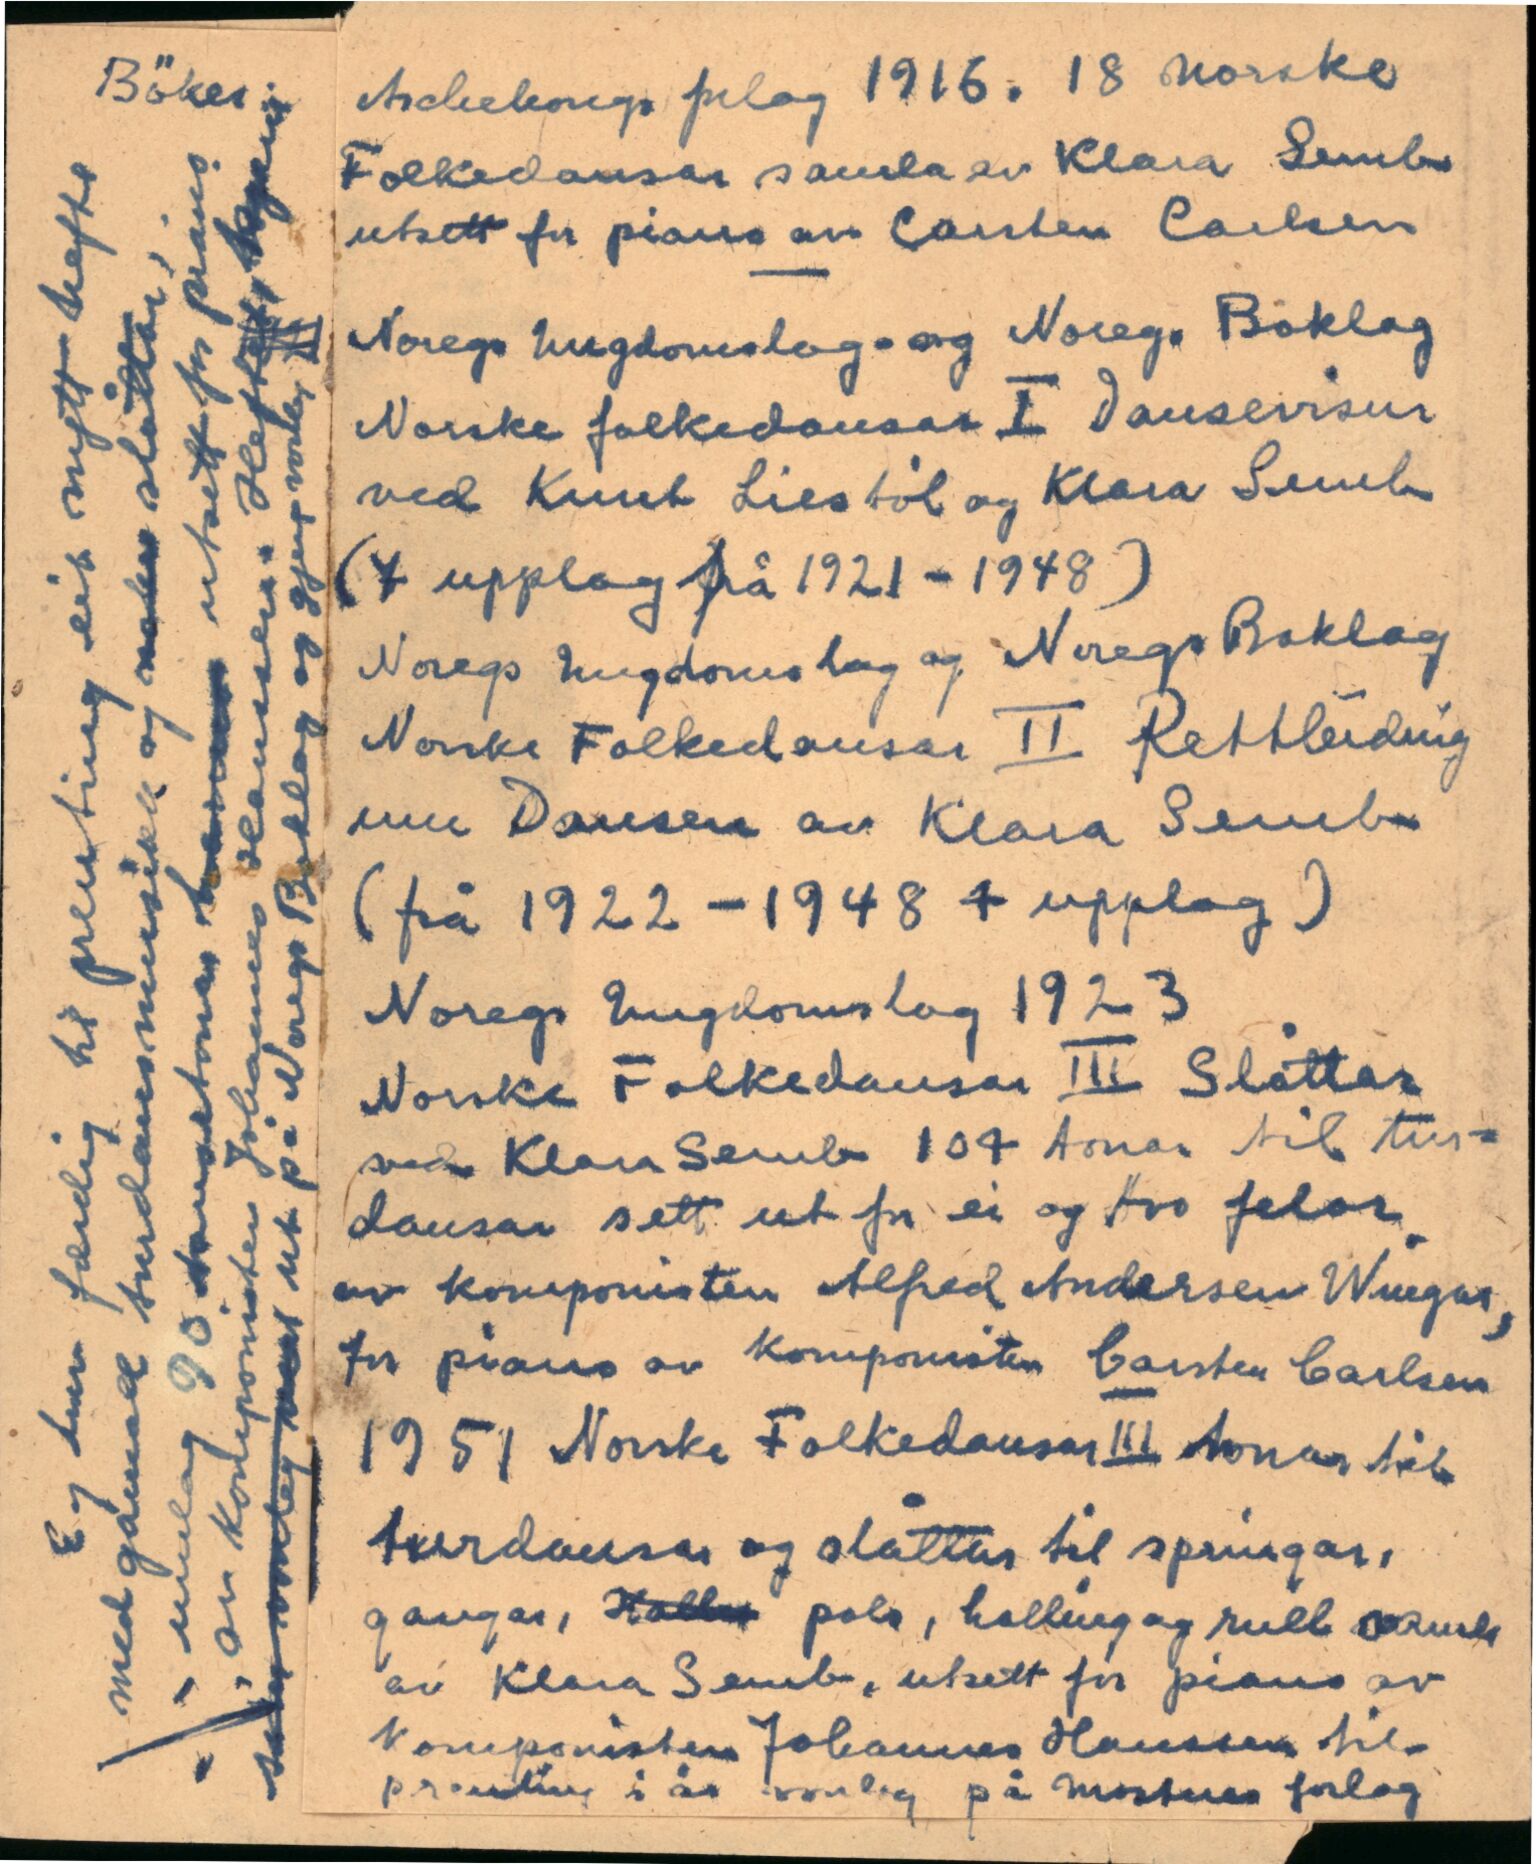 Böker:
Aschehougs forlag 1916. 18 Norske
Folkedansar samla av Klara Semb
utsett for piano av Carsten Carlsen
Noregs Ungdomslag og Noregs Boklag
Norske folkedansar I Dansevisur
ved Knut Liestöl og Klara Semb
(4 upplag frå 1921-1948)
Noregs Ungdomslag og Noregs Boklag
Norske Folkedansar II Rettleiding
um Dansen av Klara Semb
(frå 1922-1948 4 upplag)
Noregs Ungdomslag 1923
Norske Folkedansar III Slåttar
ved Klara Semb 104 tonar til tur-
dansar sett ut for ei og tvo felor
av komponisten Alfred Andersen Wingar,
for piano av Komponisten Carsten Carlsen
1951 Norske Folkedansar III tonar til
turdansar og slåttar til springar,
gangar, pols, halling og rull
av Klara Semb, utsett for piano av
Komponisten Johannes Hanssen til
prenting i år vonleg på forlag
Eg hev ferdig til prenting eit nytt hefte
med gamal turdansmusikk og slåttar,
- umlag 90 utsett for piano
- av komponisten Johannes Hanssen. Heftet
ut på Noregs Boklag og vonleg